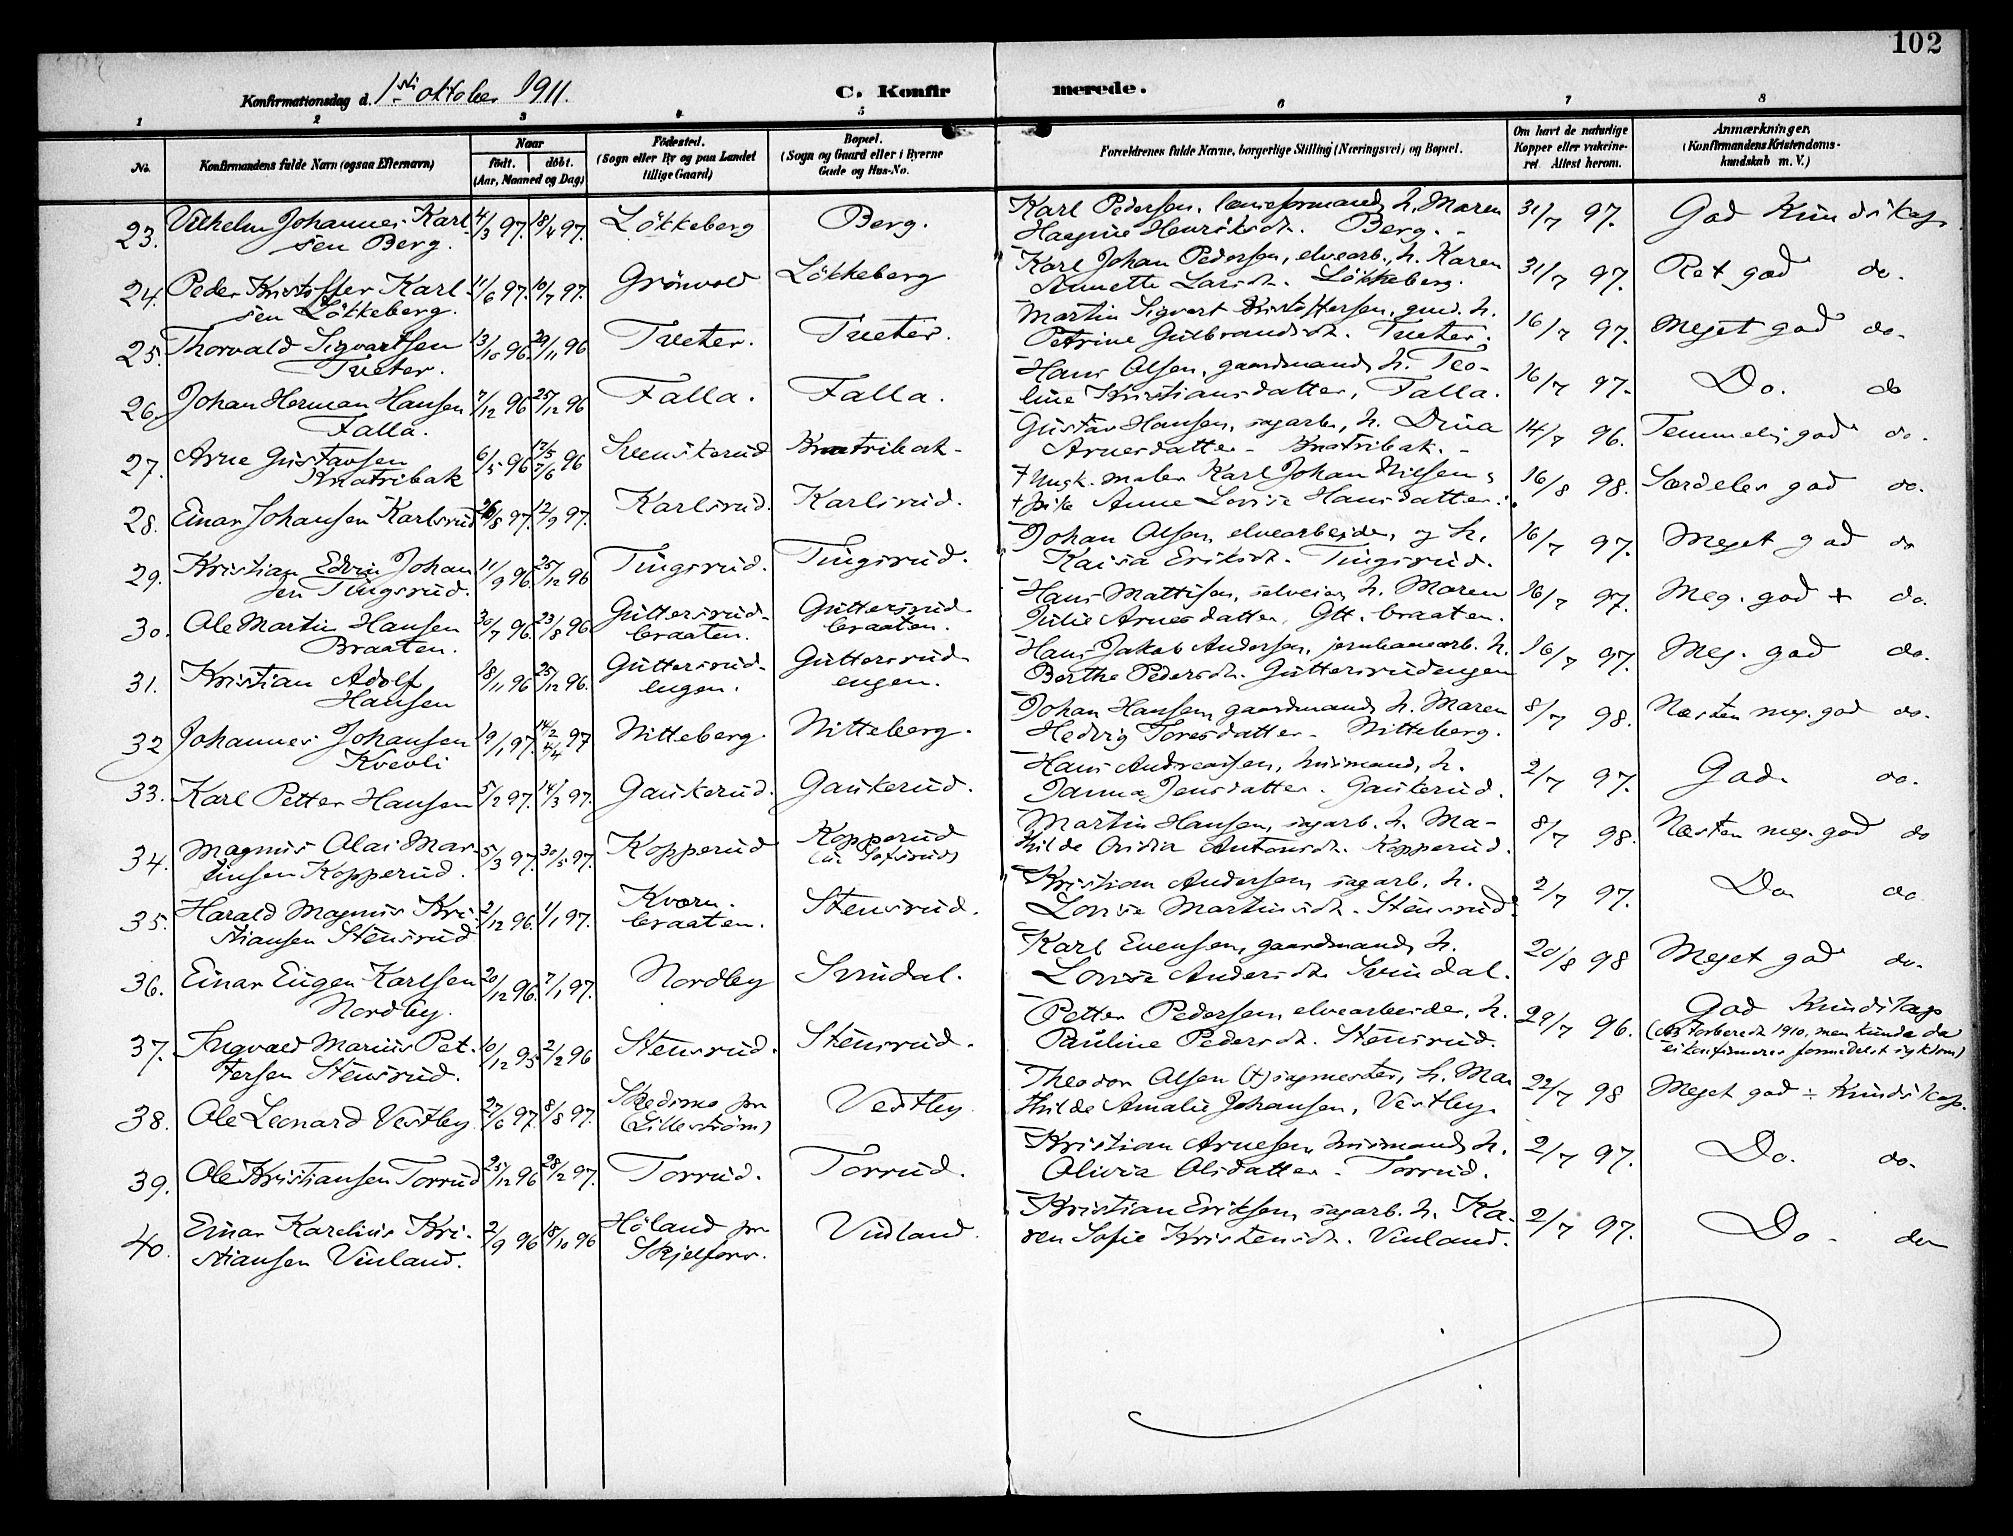 102
Konfirmationsdag d. 1ste oktober 1911.
C. Konfirmerede.
1 2 3 4 5 6 7 8
No.
Konfirmandens fulde Navn (ogsaa Efternavn)
Naar
født. døbt.
(Aar, Maaned og Dag)
Fødested.
(Sogn eller By og paa Landet
tillige Gaard)
Bopæl.
(Sogn og Gaard eller i Byerne
Gade og Hus-No.
Forældrenes fulde Navne, borgerlige Stilling (Næringsvei) og Bopæl.
Om havt de naturlige
Kopper eller vakcine-
ret. Attest herom.
Anmærkninger.
(Konfirmandens Kristendoms-
kundskab m. V.)
23. Vilhelm Johannes Karl- 4/3 97. 18/4 97. Løkkeberg Berg. Karl Pedersen, h. Maren 31/7 97. God Kundskap.
sen Berg. Henriksdt. Berg.
24. Peder Kristoffer Karl- 11/6 97. 10/7 97. Grönvold Løkkeberg Karl Johan Pedersen, elvearb., h. Karen 31/7 97. Ret god do.
sen Løkkeberg. Annette Larsdt. Løkkeberg.
25. Thorvald Sigvartsen 13/10 96. 29/11 96 Tveter. Tveter. Martin Sigvart Kristoffersen, gmd. h. 16/7 97. Meget god do.
Tveter. Petrine Gulbrandsdt. Tveter.
26. Johan Herman Hansen 7/12 96 25/12 96 Falla. Falla. Hans Olsen, gaardmand, h. Teo- 16/7 97. Do. do
Falla. line Kristiansdatter, Falla.
27. Arne Gustavsen 6/5 96 17/5 7/6 96 Svenskerud Knatribak. Gustav Hansen, sagarb., h. Dina 14/7 96. Temmelig god do.
Knatribak Arnesdatter. Knatribak.
28. Einar Johansen Karlsrud 26/8 97. 12/9 97. Karlsrud. Karlsrud. + Ungk. maler Karl Johan Nilsen 16/8 98. Særdeles god do.
+ pike Anne Lovise Hansdatter.
29. Kristian Edvin Johan 11/9 96. 25/12 96 Tingsrud. Tingsrud. Johan Olsen, elvearbeider, og h. 16/7 97. Meget god do
sen Tingsrud. Kaisa Eriksdt. Tingsrud.
30. Ole Martin Hansen 30/7 96. 23/8 96 Guttersrud- Guttersrud- Hans Mattisen, selveier, h. Maren 16/7 97. Meg. god + do.
Braaten. braaten. braaten. Julie Arnesdatter, Gtt. braaten.
31. Kristian Adolf 18/11 96 25/12 96. Guttersrud- Guttersrud Hans Jakob Andersen, jernbanearb. h. 16/7 97. Meg. god do.
Hansen engen. engen. Berthe Pedersdt. Guttersrudengen
32 Johannes Johansen 19/1 97. 14/2 4/4 97 Nitteberg. Nitteberg. Johan Hansen, gaardmand, h. Maren 8/7 98. Næsten meg. god do.
Kvevli Hedvig Toresdatter. Nitteberg.
33. Karl Petter Hansen 5/2 97. 14/3 97. Gaukerud. Gaukerud. Hans Andreassen, husmand, h. 2/7 97. God. do.
Janna Jensdatter. Gaukerud.
34. Magnus Olai Mar 5/3 97. 30/5 97. Kopperud Kopperud Martin Hansen, sagarb. h. Ma- 8/7 98. Næsten meg. god do
tinsen Kopperud. thilde Antonsdt. Kopperud.
35. Harald Magnus Kri- 2/12 96. 1/1 97. Kværn- Stensrud. Kristian Andersen, sagarb. h. 2/7 97. Do. do
stiansen Stensrud braaten. Lovise Martinsdt. Stensrud.
36. Einar Eugen Karlsen 20/12 96. 7/1 97. Nordby Svindal. Karl Evensen, gaardmand, h. 20/8 98 Meget god do.
Nordby. Lovise Andersdt. Svindal.
37. Ingvald Marius Pet- 10/12 95 2/2 96 Stensrud. Stensrud. Petter Pedersen, elvearbeider, h. 29/7 96. God Kundskap
tersen Stensrud. Pauline Pedersdt. Stensrud. forberedt 1910, men kunde da
ei konfirmeres formedelst sykdom)
38. Ole Leonard Vestby 27/6 97. 8/8 97. Skedsmo pr Vestby. Theodor Olsen (+) sagmester, h. Ma 22/7 98 Meget god ÷ Kundskap.
(Lillestrøm) thilde Amalie Johansen, Vestby.
39. Ole Kristiansen Torrud 25/12 96 28/2 97. Torrud. Torrud. Kristian Arnesen, husmand, h. 2/7 97. Do. do.
Olivia Olsdatter. Torrud.
40. Einar Karelius Kri- 2/9 96 18/10 96 Høland pr Vinland. Kristian Eriksen, sagarb. h. Ka- 2/7 97. Do. do
stiansen Vinland. Skjelfoss. ren Sofie Kristensdt. Vinland.